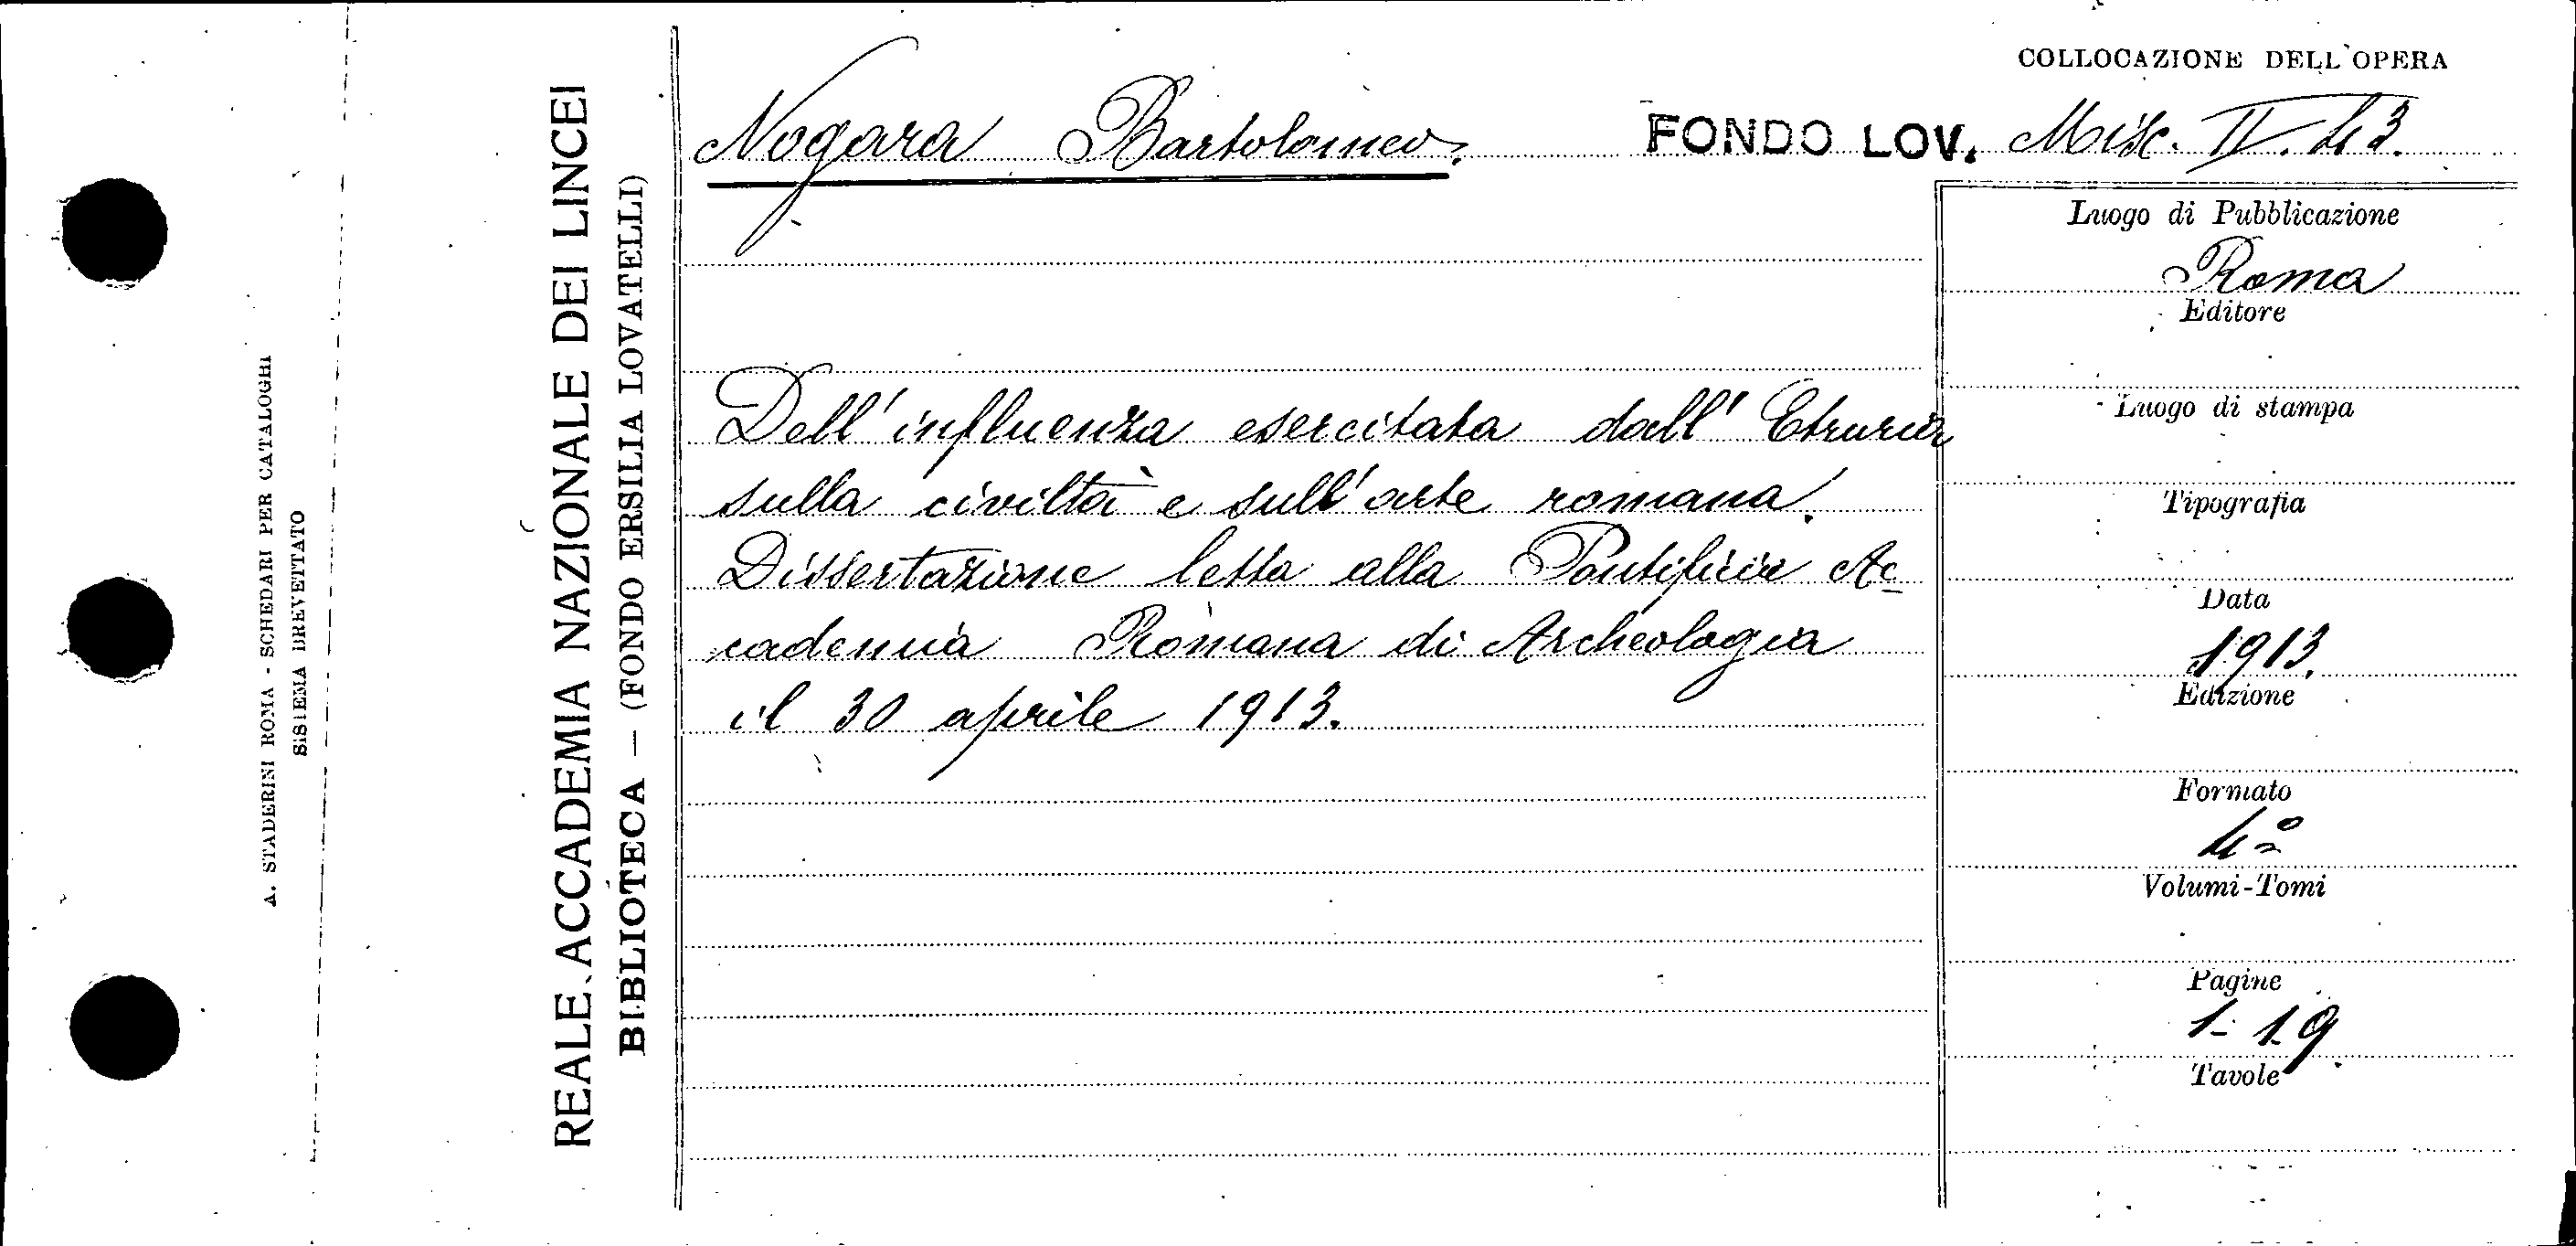 A. STADERINI ROMA - SCHEDARI PER CATALOGHI
SISTEMA BREVETTATO
REALE ACCADEMIA NAZIONALE DEI LINCEI
BIBLIOTECA — (FONDO ERSILIA LOVATELLI)
COLLOCAZIONE DELL'OPERA
Nogara Bartolomeo. FONDO LOV. Misc. IV. 43.
Dell'influenza esercitata dall'Etruria
sulla civiltà e sull'arte romana.
Dissertazione letta alla Pontificia Ac
cademia Romana di Archeologia
il 30 aprile 1913.
Luogo di Pubblicazione
Roma
Editore
Luogo di stampa
Tipografia
Data
1913.
Edizione
Formato
4º
Volumi-Tomi
Pagine
1-19
Tavole